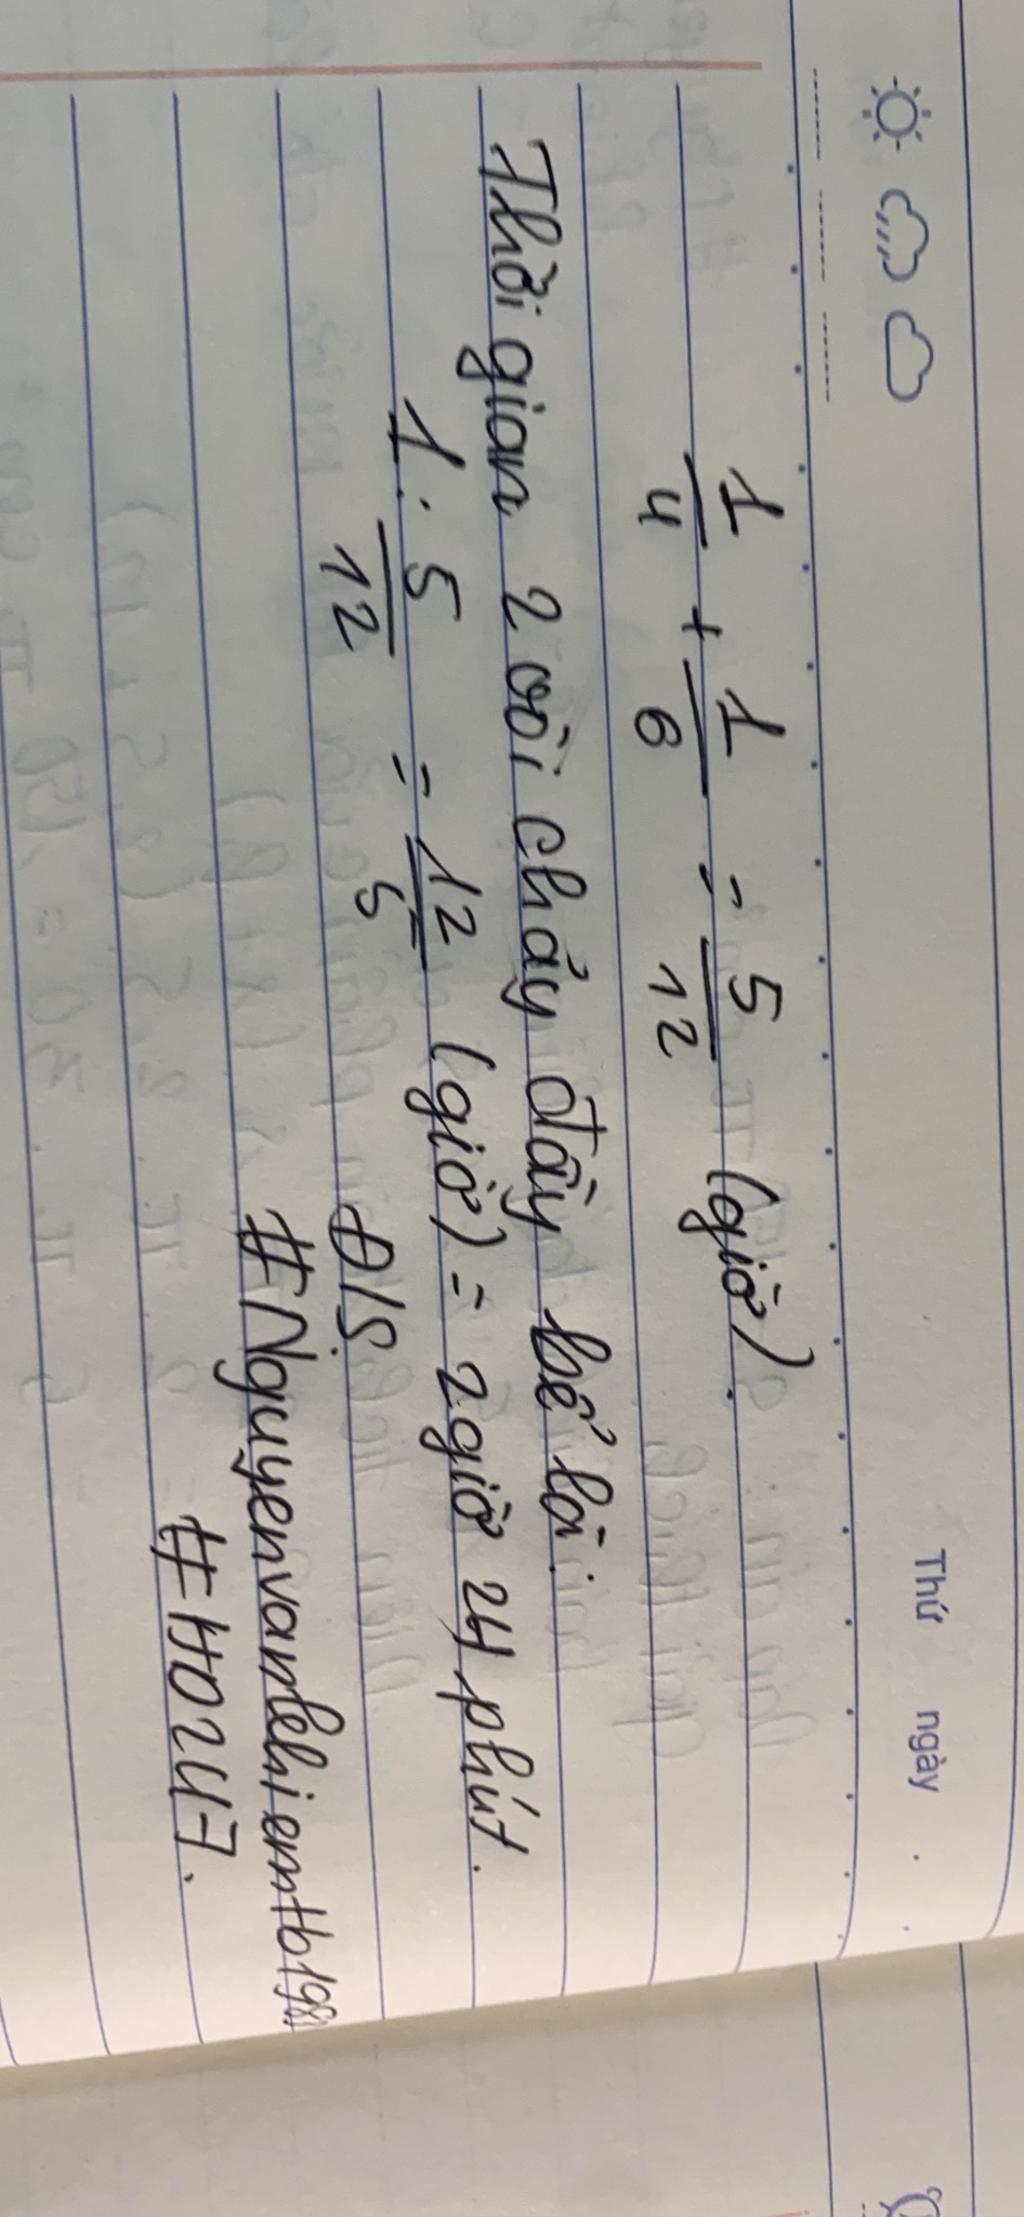 Thứ ngày
1/4 + 1/6 = 5/12 (giờ).
Thời gian 2 vòi chảy đầy bể là:
1 : 5/12 = 12/5 (giờ) = 2 giờ 24 phút.
Đ/S.
#Nguyenvanliemtb1981
#HOZU7.